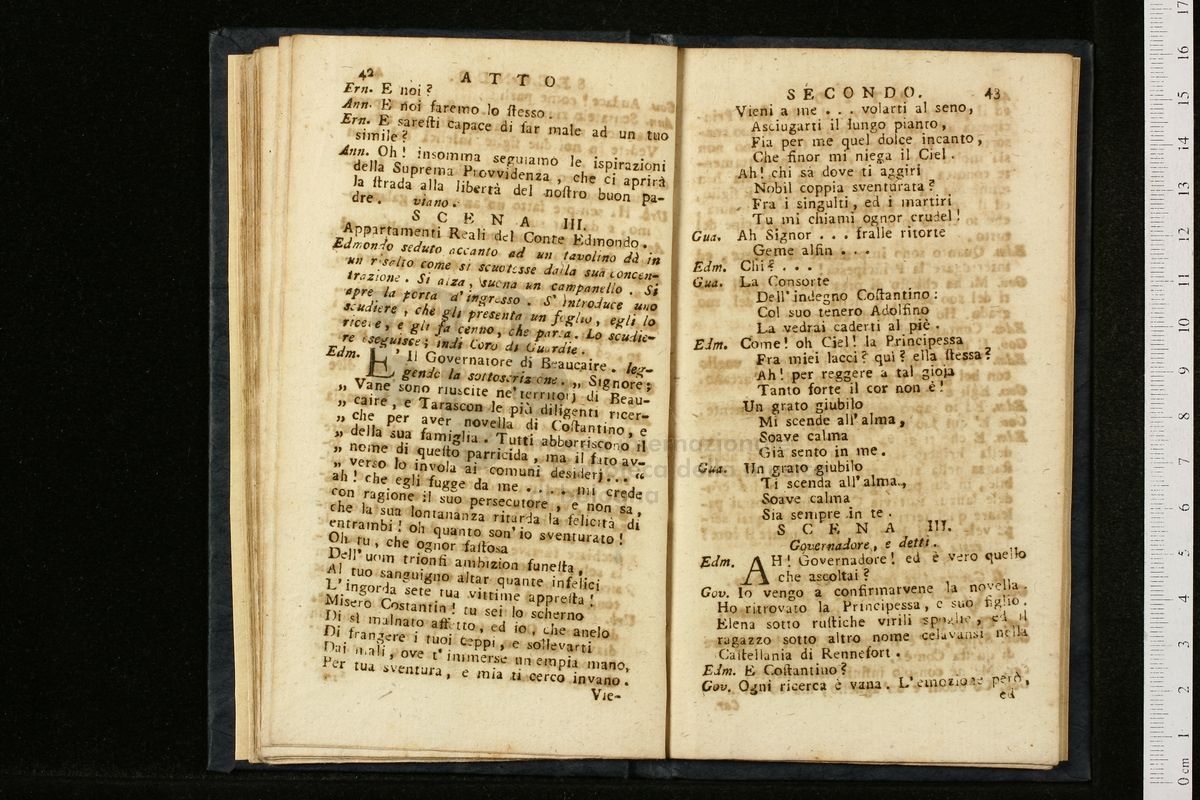 42 ATTO
Ern. E noi?
Ann. E noi faremo lo ſteſſo.
Ern. E sareſti capace di far male ad un tuo
simile?
Ann. Oh! insomma seguiamo le ispirazioni
della Suprema Provvidenza, che ci aprirà
la ſtrada alla libertà del noſtro buon pa-
dre. viano.
SCENA III.
Appartamenti Reali del Conte Edmondo.
Edmondo seduto accanto ad un tavolino dà in
un risalto come si scuotesse dalla sua concen-
trazione. Si alza, suona un campanello. Si
apre la porta d'ingresso. S' introduce uno
scudiere, che gli presenta un foglio, egli lo
riceve, e gli fa cenno, che parta. Lo scudie-
re eseguisce; indi Coro di Guardie.
Edm. E' Il Governatore di Beaucaire. leg-
gendo la sottoscrizione. „ Signore;
„ Vane sono riuscite ne' territorj di Beau-
„ caire, e Tarascon le più diligenti ricer-
„ che per aver novella di Coſtantino, e
„ della sua famiglia. Tutti abborriscono il
„ nome di queſto parricida, ma il fato av-
„ verso lo invola ai comuni desiderj... “
ah! che egli fugge da me .... mi crede
con ragione il suo persecutore, e non sa,
che la sua lontananza ritarda la felicità di
entrambi! oh quanto son' io sventurato!
Oh tu, che ognor faſtosa
Dell' uom trionfi ambizion funeſta,
Al tuo sanguigno altar quante infelici
L' ingorda sete tua vittime appreſta!
Misero Costantin! tu sei lo scherno
Di sì malnato affetto, ed io, che anelo
Di frangere i tuoi ceppi, e sollevarti
Dai mali, ove t' immerse un empia mano,
Per tua sventura, e mia ti cerco invano.
Vie-
SECONDO. 43
Vieni a me ... volarti al seno,
Asciugarti il lungo pianto,
Fia per me quel dolce incanto,
Che finor mi niega il Ciel.
Ah! chi sa dove ti aggiri
Nobil coppia sventurata?
Fra i singulti, ed i martiri
Tu mi chiami ognor crudel!
Gua. Ah Signor ... fralle ritorte
Geme alfin ...
Edm. Chi? ...
Gua. La Consorte
Dell' indegno Coſtantino:
Col suo tenero Adolfino
La vedrai caderti al piè.
Edm. Come! oh Ciel! la Principessa
Fra miei lacci? quì? ella ſtessa?
Ah! per reggere a tal gioja
Tanto forte il cor non è!
Un grato giubilo
Mi scende all' alma,
Soave calma
Già sento in me.
Gua. Un grato giubilo
Ti scenda all' alma,
Soave calma
Sia sempre in te.
SCENA III.
Governadore, e detti.
Edm. AH! Governadore! ed è vero quello
che ascoltai?
Gov. Io vengo a confirmarvene la novella.
Ho ritrovato la Principessa, e suo figlio.
Elena sotto ruſtiche virili spoglie, ed il
ragazzo sotto altro nome celavansi nella
Caſtellania di Rennefort.
Edm. E Coſtantino?
Gov. Ogni ricerca è vana. L' emozione però,
ed